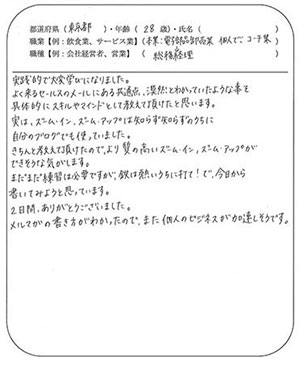 都道府県（東京都）・年齢（28歳）・氏名（　　　　）
職業【例：飲食業、サービス業】（本業：電子部品商業 個人で：コーチ業）
職種【例：会社経営者、営業】（総務経理）
実践的で大変学びになりました。
よく来るセールスのメールにある共通点、漠然とわかっていたような事を
具体的にスキルやマインドとして教えて頂けたと思います。
実は、ズーム・イン、ズーム・アップは知らず知らずのうちに
自分のブログでも使っていました。
きちんと教えて頂けたので、より質の高いズーム・イン、ズーム・アップが
できそうな気がします。
まだまだ練習は必要ですが、鉄は熱いうちに打て！で、今日から
書いてみようと思っています。
2日間、ありがとうございました。
メルマガの書き方がわかったので、また個人のビジネスが加速しそうです。